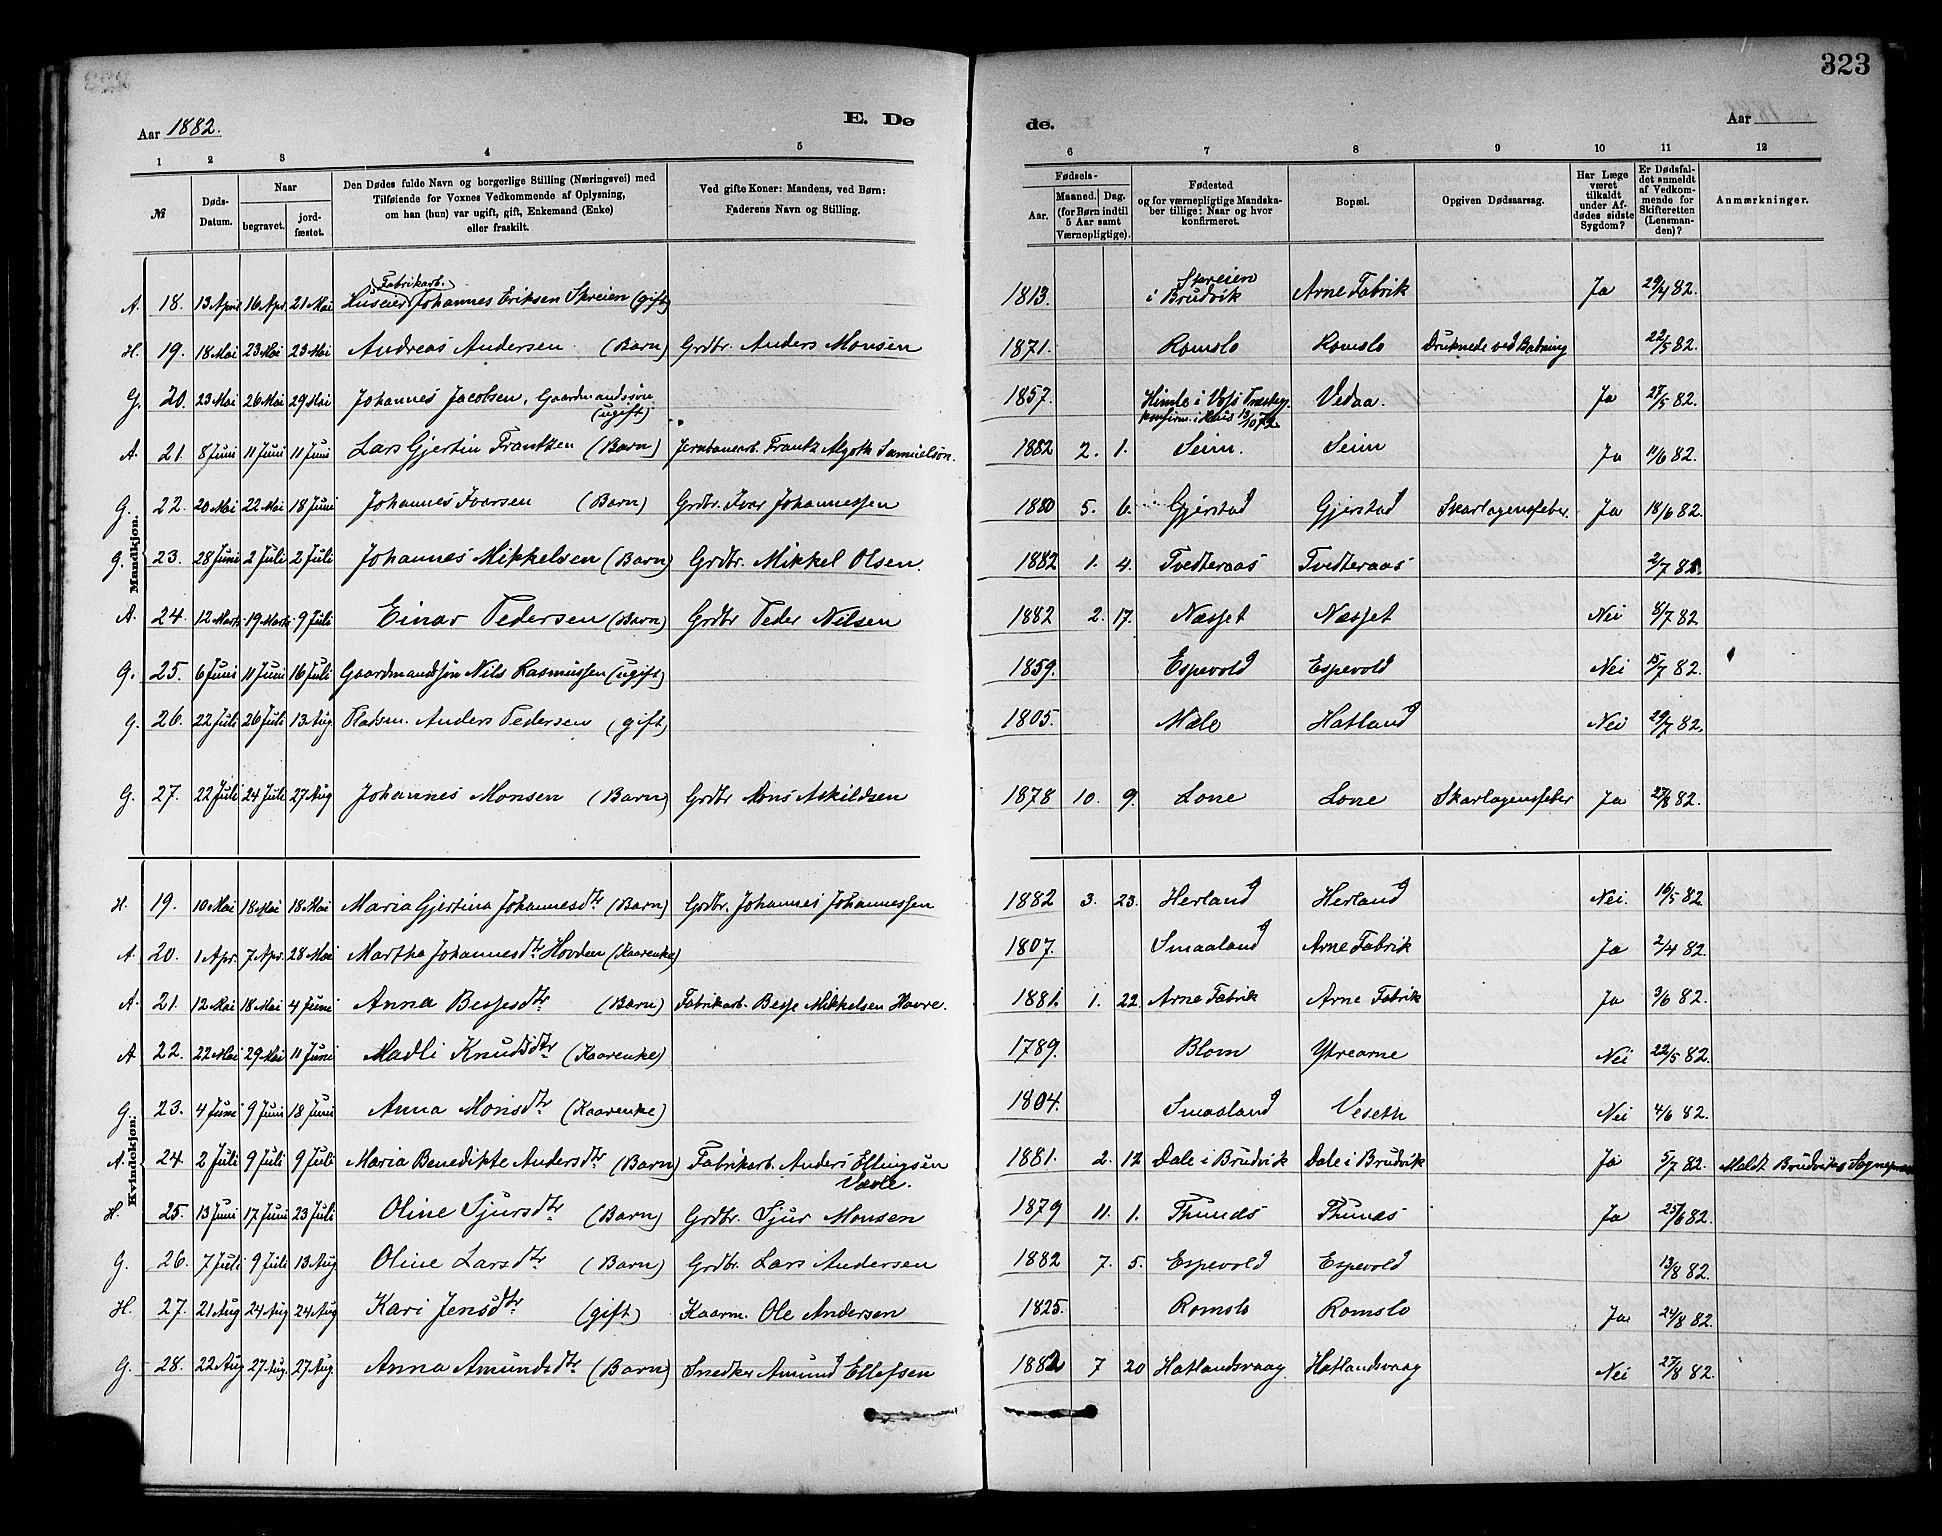 323
Aar 1882.
E. Dø
de.
Aar
1 2 3 4 5 6 7 8 9 10 11 12
№
Døds-Datum.
Naar
begravet.
jord-fæstet.
Den Dødes fulde Navn og borgerlige Stilling (Næringsvei) med
Tilføiende for Voxnes Vedkommende af Oplysning,
om han (hun) var ugift, gift, Enkemand (Enke)
eller fraskilt.
Ved gifte Koner: Mandens, ved Børn:
Faderens Navn og Stilling.
Fødsels-
Aar.
Maaned. Dag.
(for Børn indtil
5 Aar samt
Værnepligtige).
Fødested
og for værnepligtige Mandska-
ber tillige: Naar og hvor
konfirmeret.
Bopæl.
Opgiven Dødsaarsag.
Har Læge
været
tilkaldt
under Af-
dødes sidste
Sygdom?
Er Dødsfal-
det anmeldt
af Vedkom-
mende for
Skifteretten
(Lensman-
den)?
Anmærkninger.
Mandkjøn.
A. 18. 13 April 16 Apr. 21 Mai Huseier Fabrikarb. Johannes Eriksen Spreien (gift) 1813. Spreien i Brudvik Arne Fabrik Ja 29/4 82.
H. 19. 18 Mai 23 Mai 23 Mai Andreas Andersen (Barn) Grdbr. Anders Monsen 1871. Romslo Romslo Druknede ved Badning 22/5 82.
G. 20. 23 Mai 26 Mai 29 Mai Johannes Jacobsen, Gaardmandssøn (ugift) 1857. Himle i Vosskonfirm. i Haus Vedaa. Ja 27/5 82.
A. 21. 8 Juni 11 Juni 11 Juni Lars Gjertin Frantzen (Barn) Jernbanearb. Frantz Algoth Samuelson. 1882 2. 1. Seim. Seim Ja 11/6 82.
G. 22. 20 Mai 22 Mai 18 Juni Johannes Ivarsen (Barn) Grdbr. Ivar Johannessen 1880 5. 6. Gjerstad Gjerstad Skarlagensfeber Ja 18/6 82.
G. 23. 28 Juni 2 Juli 2 Juli Johannes Mikkelsen (Barn) Grdbr. Mikkel Olsen. 1882 1. 4. Tvedteraas Tvedteraas 2/7 82.
A. 24. 12 Marts 19 Marts 9 Juli Einar Pedersen (Barn) Grdbr Peder Nilsen 1882 2. 17. Næsset Næsset Nei 8/7 82
G. 25. 6 Juni 11 Juni 16 Juli Gaardmandssøn Nils Rasmussen (ugift) 1859. Espevold Espevold Nei 15/7 82.
G. 26. 22 Juli 26 Juli 13 Aug. Pladsm. Anders Pedersen (gift) 1805. Mæle Hatland Nei 29/7 82.
G. 27. 22 Juli 24 Juli 27 Aug Johannes Monsen (Barn) Grdbr Mons Askildsen 1878 10. 9. Lone Lone Skarlagensfeber Ja 27/8 82.
Kvindekjøn.
H. 19. 10 Mai 18 Mai 18 Mai Maria Gjertina Johannesdtr (Barn) Grdbr. Johannes Johannessen 1882 3. 23. Herland Herland Nei. 16/5 82.
A. 20. 1 Apr. 7 Apr. 28 Mai Martha Johannesdtr Hovden (Kaarenke) 1807. Smaaland Arne Fabrik Ja 2/4 82.
A. 21. 12 Mai 18 Mai 4 Juni Anna Bessesdtr (Barn) Fabrikarb. Besse Mikkelsen Havre. 1881. 1. 22. Arne Fabrik Arne Fabrik Ja 3/6 82.
A. 22. 22 Mai 29 Mai 11 Juni Madli Knudsdtr (Kaarenke) 1789. Blom Ytrearne Nei 22/5 82.
G. 23. 4 Juni 9 Juni 18 Juni Anna Monsdtr (Kaarenke) 1804. Smaaland Veseth Nei 4/6 82.
A. 24. 2 Juli 9 Juli 9 Juli Maria Benedikte Andersdtr (Barn) Fabrikarb. Anders Ellingsen 1881. 2. 12 Dale i Brudvik Dale i Brudvik Ja 5/7 82. Meldt Brudviks
H. 25. 13 Juni 17 Juni 23 Juli Oline Sjursdtr (Barn) Grdbr. Sjur Monsen 1879 11. 1. Thunes Thunes Ja 25/6 82.
G. 26. 7 Juli 9 Juli 13 Aug Oline Larsdtr (Barn) Grdbr. Lars Andersen 1882 7. 5. Espevold Espevold 13/8 82.
H. 27. 21 Aug 24 Aug 24 Aug Kari Jensdtr (gift) Kaarm. Ole Andersen 1825. Romslo Romslo Ja 24/8 82.
G. 28. 22 Aug 27 Aug. 27 Aug. Anna Amundsdtr (Barn) Snedker Amund Ellefsen 1882 7 20 Hatlandsvaag Hatlandsvaag Nei 27/8 82.